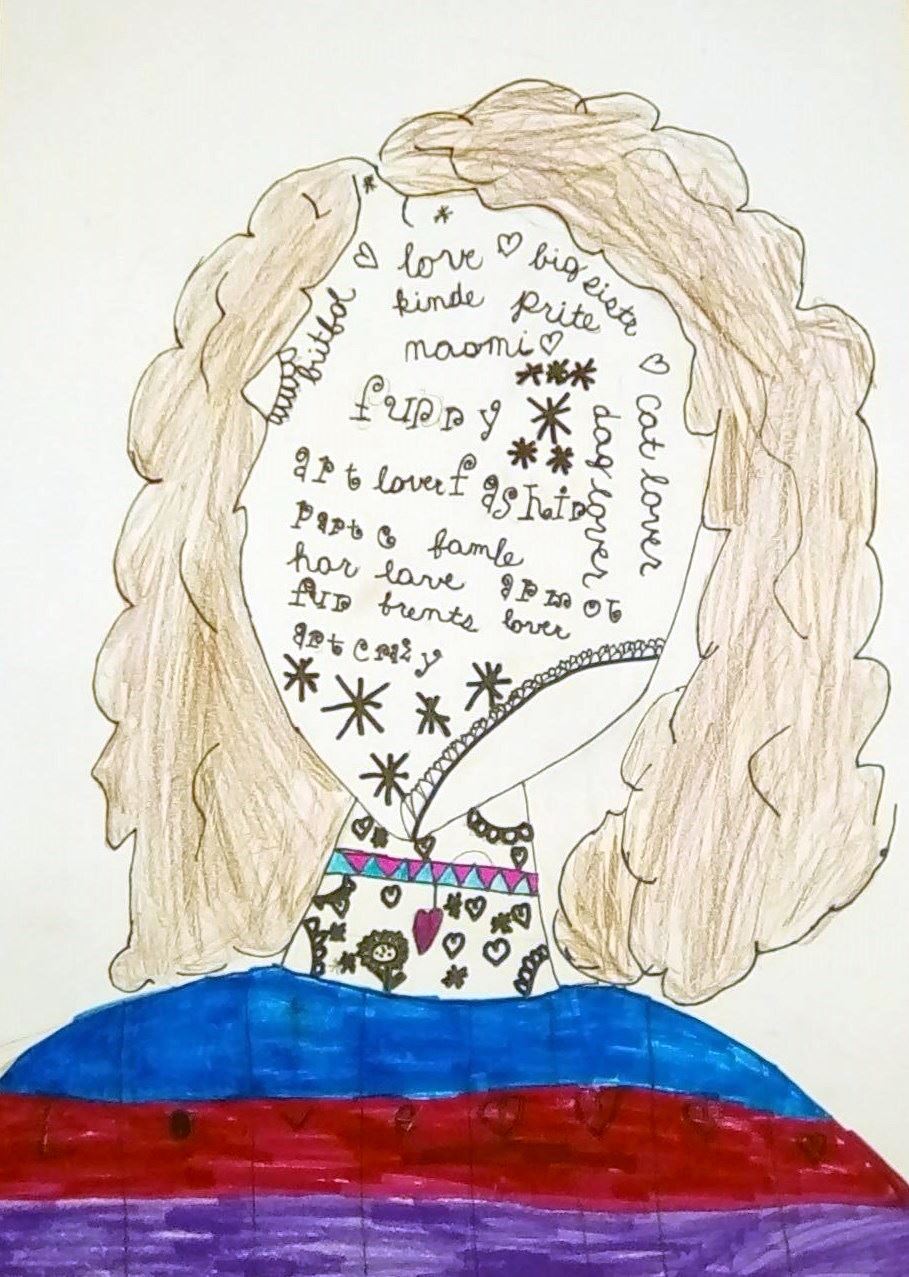 love
big sistr
kinde
prite
butbol
naomi
funny
art lover
fashin
dog lover
cat lover
part e
famle
har lave
art
fun frents lover
art crazy
love